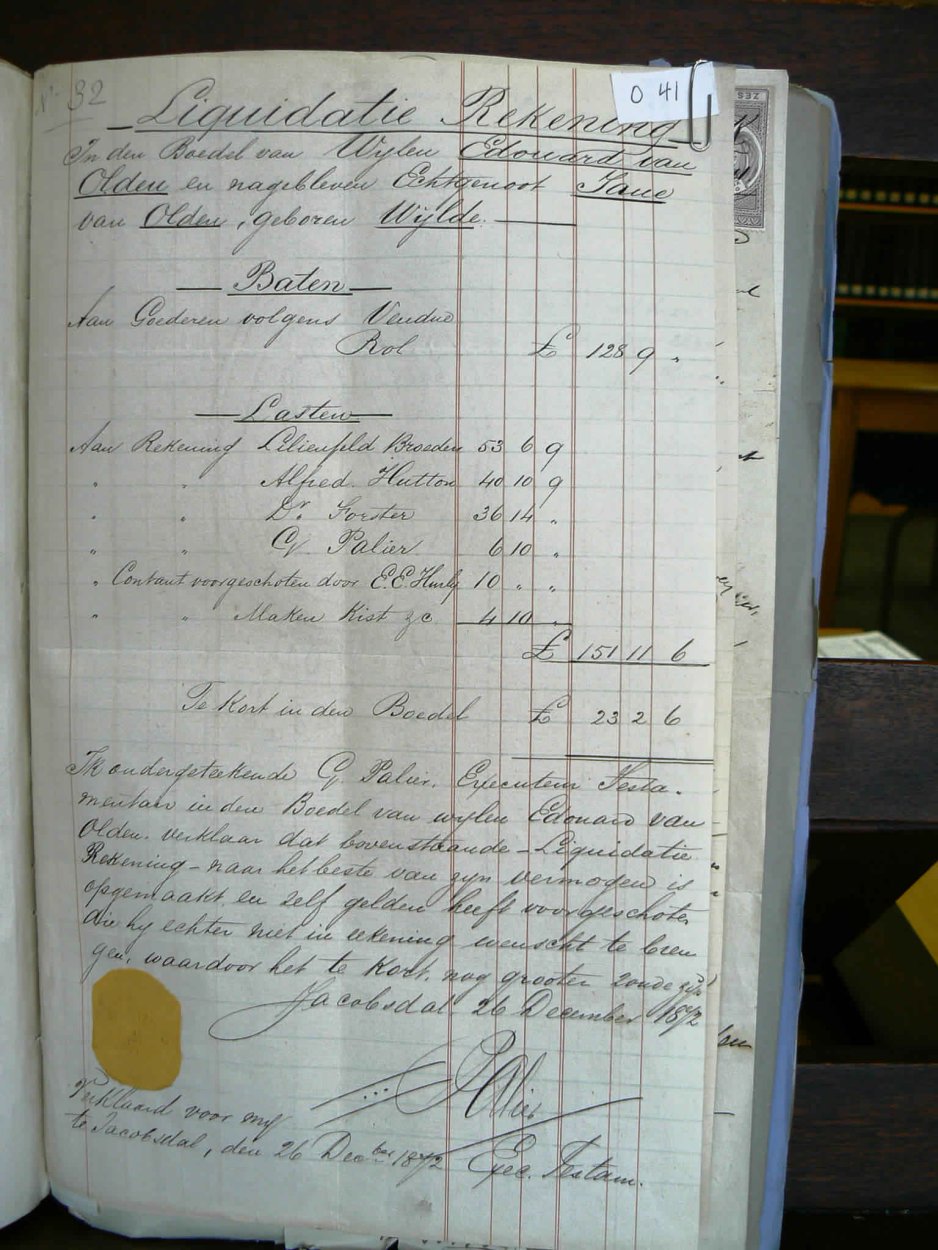 No 32
O 41
Liquidatie Rekening
In den Boedel van Wylen Edouard van
Olden en nagebleven Echtgenoot Jane
van Olden, geboren Wÿlde.
Baten
Aan Goederen volgens Vendue
Rol £ 128 9 "
Lasten
Aan Rekening Lilienfeld Broeders 53 6 9
" " Alfred Hutton 40 10 9
" " Dr Forster 36 14 "
" " G. Palier 6 10 "
" Contant voorgeschoten door E.E. Hurly 10 " "
" " Maken Kist &c 4 10 "
£ 151 11 6
Te Kort in den Boedel £ 23 2 6
Ik ondergeteekende G. Palier, Executeur Testa-
mentair in den Boedel van wylen Edouard van
Olden. verklaar dat bovenstaande - Liquidatie
Rekening - naar het beste van zyn vermogen is
opgemaakt en zelf gelden heeft voorgeschoten
die hy echter niet in rekening wenscht te bren
gen, waardoor het te Kort, nog grooter zoude zijn
Jacobsdal 26 December 1872
GPalier
Verklaard voor my
te Jacobsdal, den 26 Decber 1872 Exec. Testam.